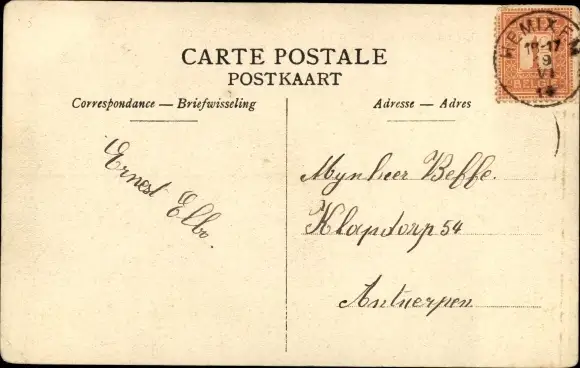 CARTE POSTALE
POSTKAART
Correspondance — Briefwisseling
Adresse — Adres
HEMIXEM
Ernest Elbo.
Mynheer Beffe.
Klapdorp 54
Antwerpen